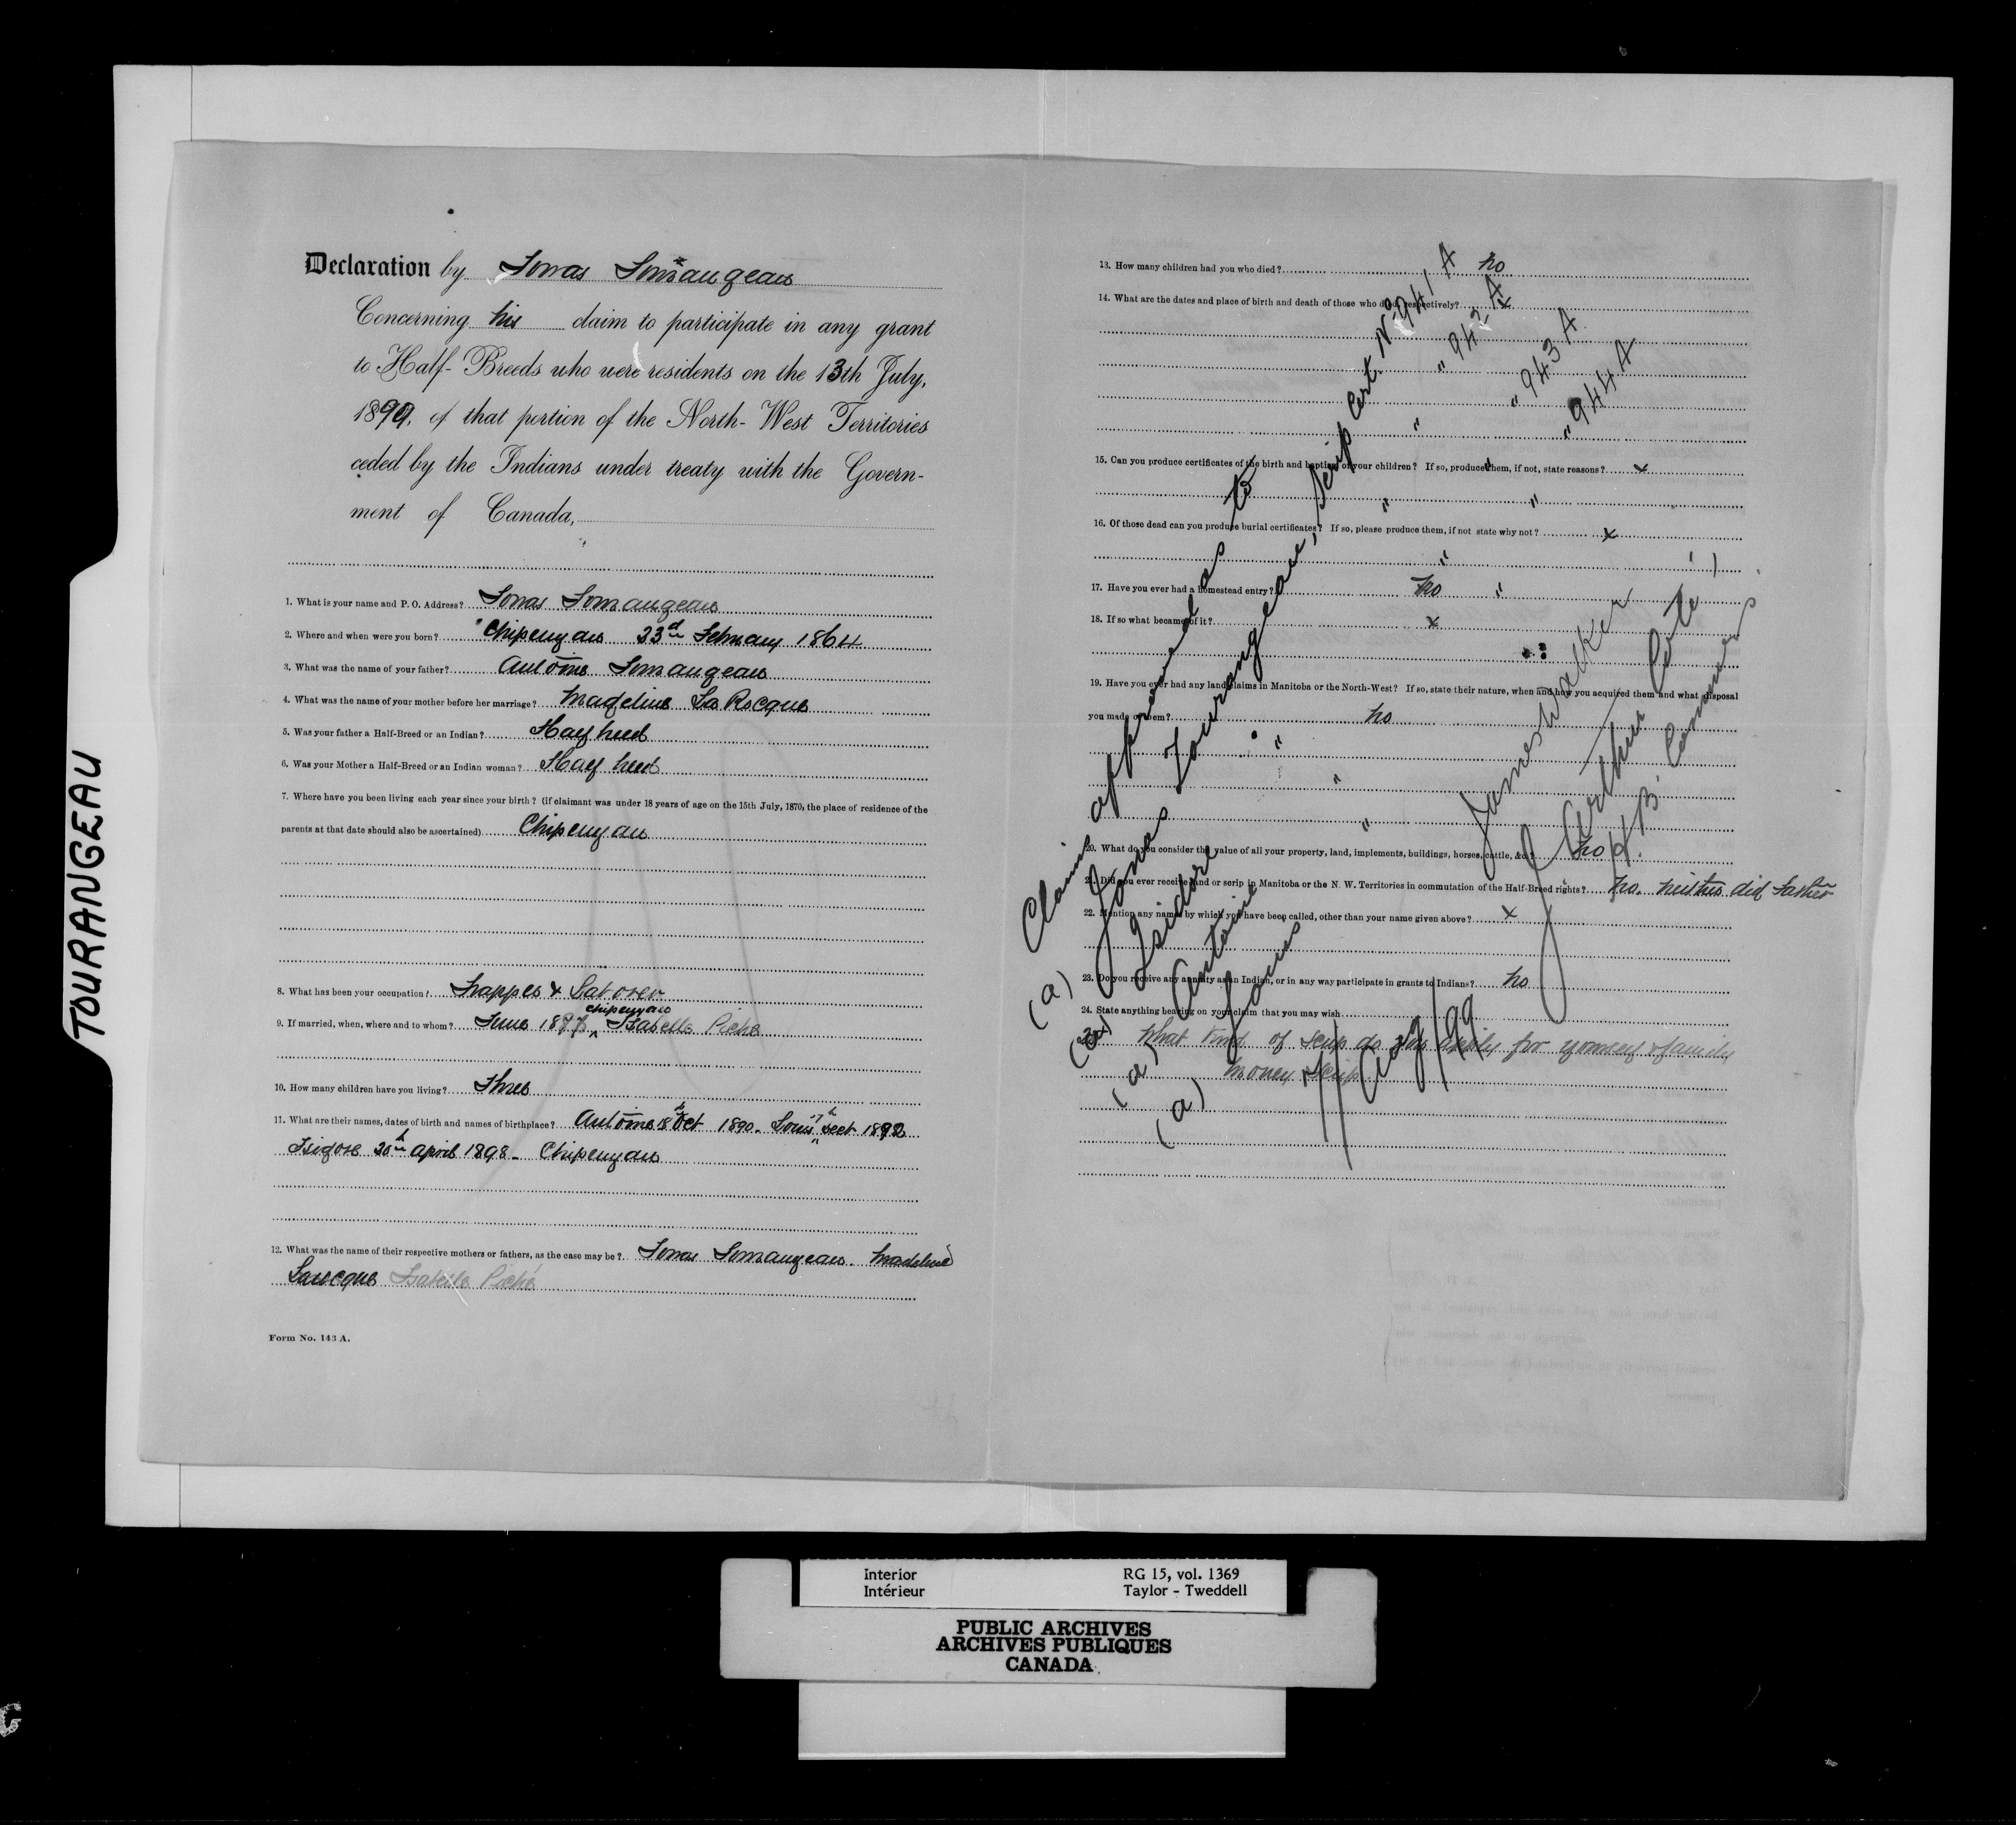 TOURANGEAU
Declaration by Jonas Tourangeau
Concerning his claim to participate in any grant
to Half-Breeds who were residents on the 13th July,
1899, of that portion of the North-West Territories
ceded by the Indians under treaty with the Govern-
ment of Canada,
1. What is your name and P. O. Address? Jonas Tourangeau
2. Where and when were you born? Chipewyan 23rd February 1864
3. What was the name of your father? Antoine Tourangeau
4. What was the name of your mother before her marriage? Madeline La Rocque
5. Was your father a Half-Breed or an Indian? Half breed
6. Was your Mother a Half-Breed or an Indian woman? Half breed
7. Where have you been living each year since your birth? (if claimant was under 18 years of age on the 15th July, 1870, the place of residence of the
parents at that date should also be ascertained) Chipewyan
8. What has been your occupation? Trapper & Laborer
Chipewyan
9. If married, when, where and to whom? June Isabelle Piché
10. How many children have you living? Three
11. What are their names, dates of birth and names of birthplace? Antoine 18th Oct 1890. Louis 7th Sept 1892
Isidore 20th April 1898 - Chipewyan
12. What was the name of their respective mothers or fathers, as the case may be? Jonas Tourangeau. Madeline
Larocque Isabelle Piché
Form No. 143 A.
13. How many children had you who died? no
14. What are the dates and place of birth and death of those who died, respectively? x
15. Can you produce certificates of the birth and baptism of your children? If so, produce them, if not, state reasons? x
16. Of those dead can you produce burial certificates? If so, please produce them, if not state why not? x
17. Have you ever had a homestead entry? no
18. If so what became of it? x
19. Have you ever had any land claims in Manitoba or the North-West? If so, state their nature, when and how you acquired them and what disposal
you made of them? no
20. What do you consider the value of all your property, land, implements, buildings, horses, cattle, &c.? no
21. Did you ever receive land or scrip in Manitoba or the N. W. Territories in commutation of the Half-Breed rights? no. neither did Father
22. Mention any names by which you have been called, other than your name given above? x
23. Do you receive any annuity as an Indian, or in any way participate in grants to Indians? no
24. State anything bearing on your claim that you may wish
What kind of scrip do you apply for yourself & family
Money Scrip
Claims approved as to
(a) Jonas Tourangeau, Scrip Cert. No 941 A
(a) Isidore " " " 942 A
(a) Antoine " " " 943 A
(a) Louis " " " 944 A
James Walker
J. Arthur Coté
H. B. Commrs
Aug/99
Interior
Intérieur
RG 15, vol. 1369
Taylor - Tweddell
PUBLIC ARCHIVES
ARCHIVES PUBLIQUES
CANADA